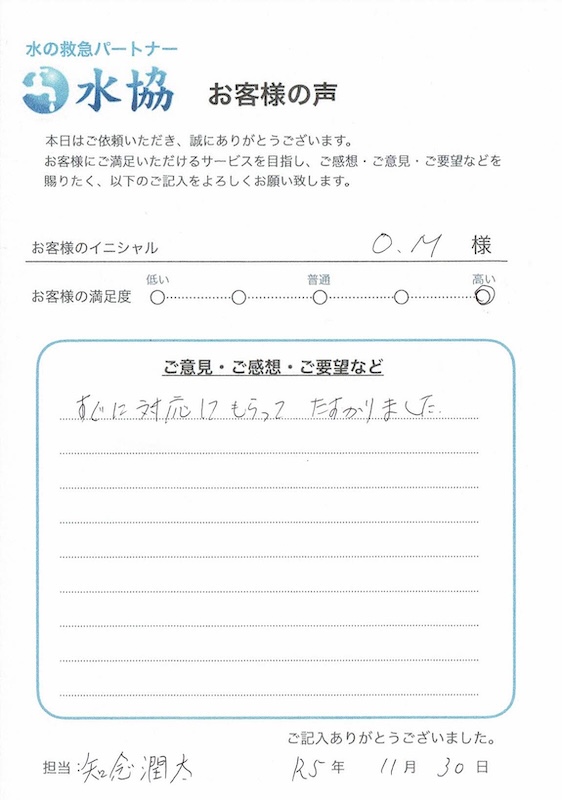 水の救急パートナー
水協 お客様の声
本日はご依頼いただき、誠にありがとうございます。
お客様にご満足いただけるサービスを目指し、ご感想・ご意見・ご要望などを
賜りたく、以下のご記入をよろしくお願い致します。
お客様のイニシャル O.M 様
低い 普通 高い
お客様の満足度
ご意見・ご感想・ご要望など
すぐに対応してもらって たすかりました.
ご記入ありがとうございました。
担当:知念潤太 R5年 11月 30日